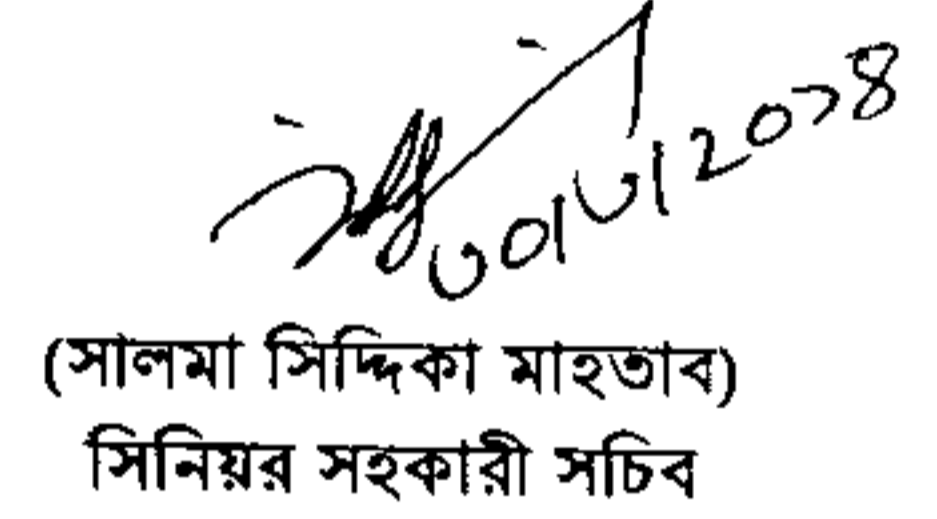 ৩০।৩।২০১৪
(সালমা সিদ্দিকা মাহতাব)
সিনিয়র সহকারী সচিব